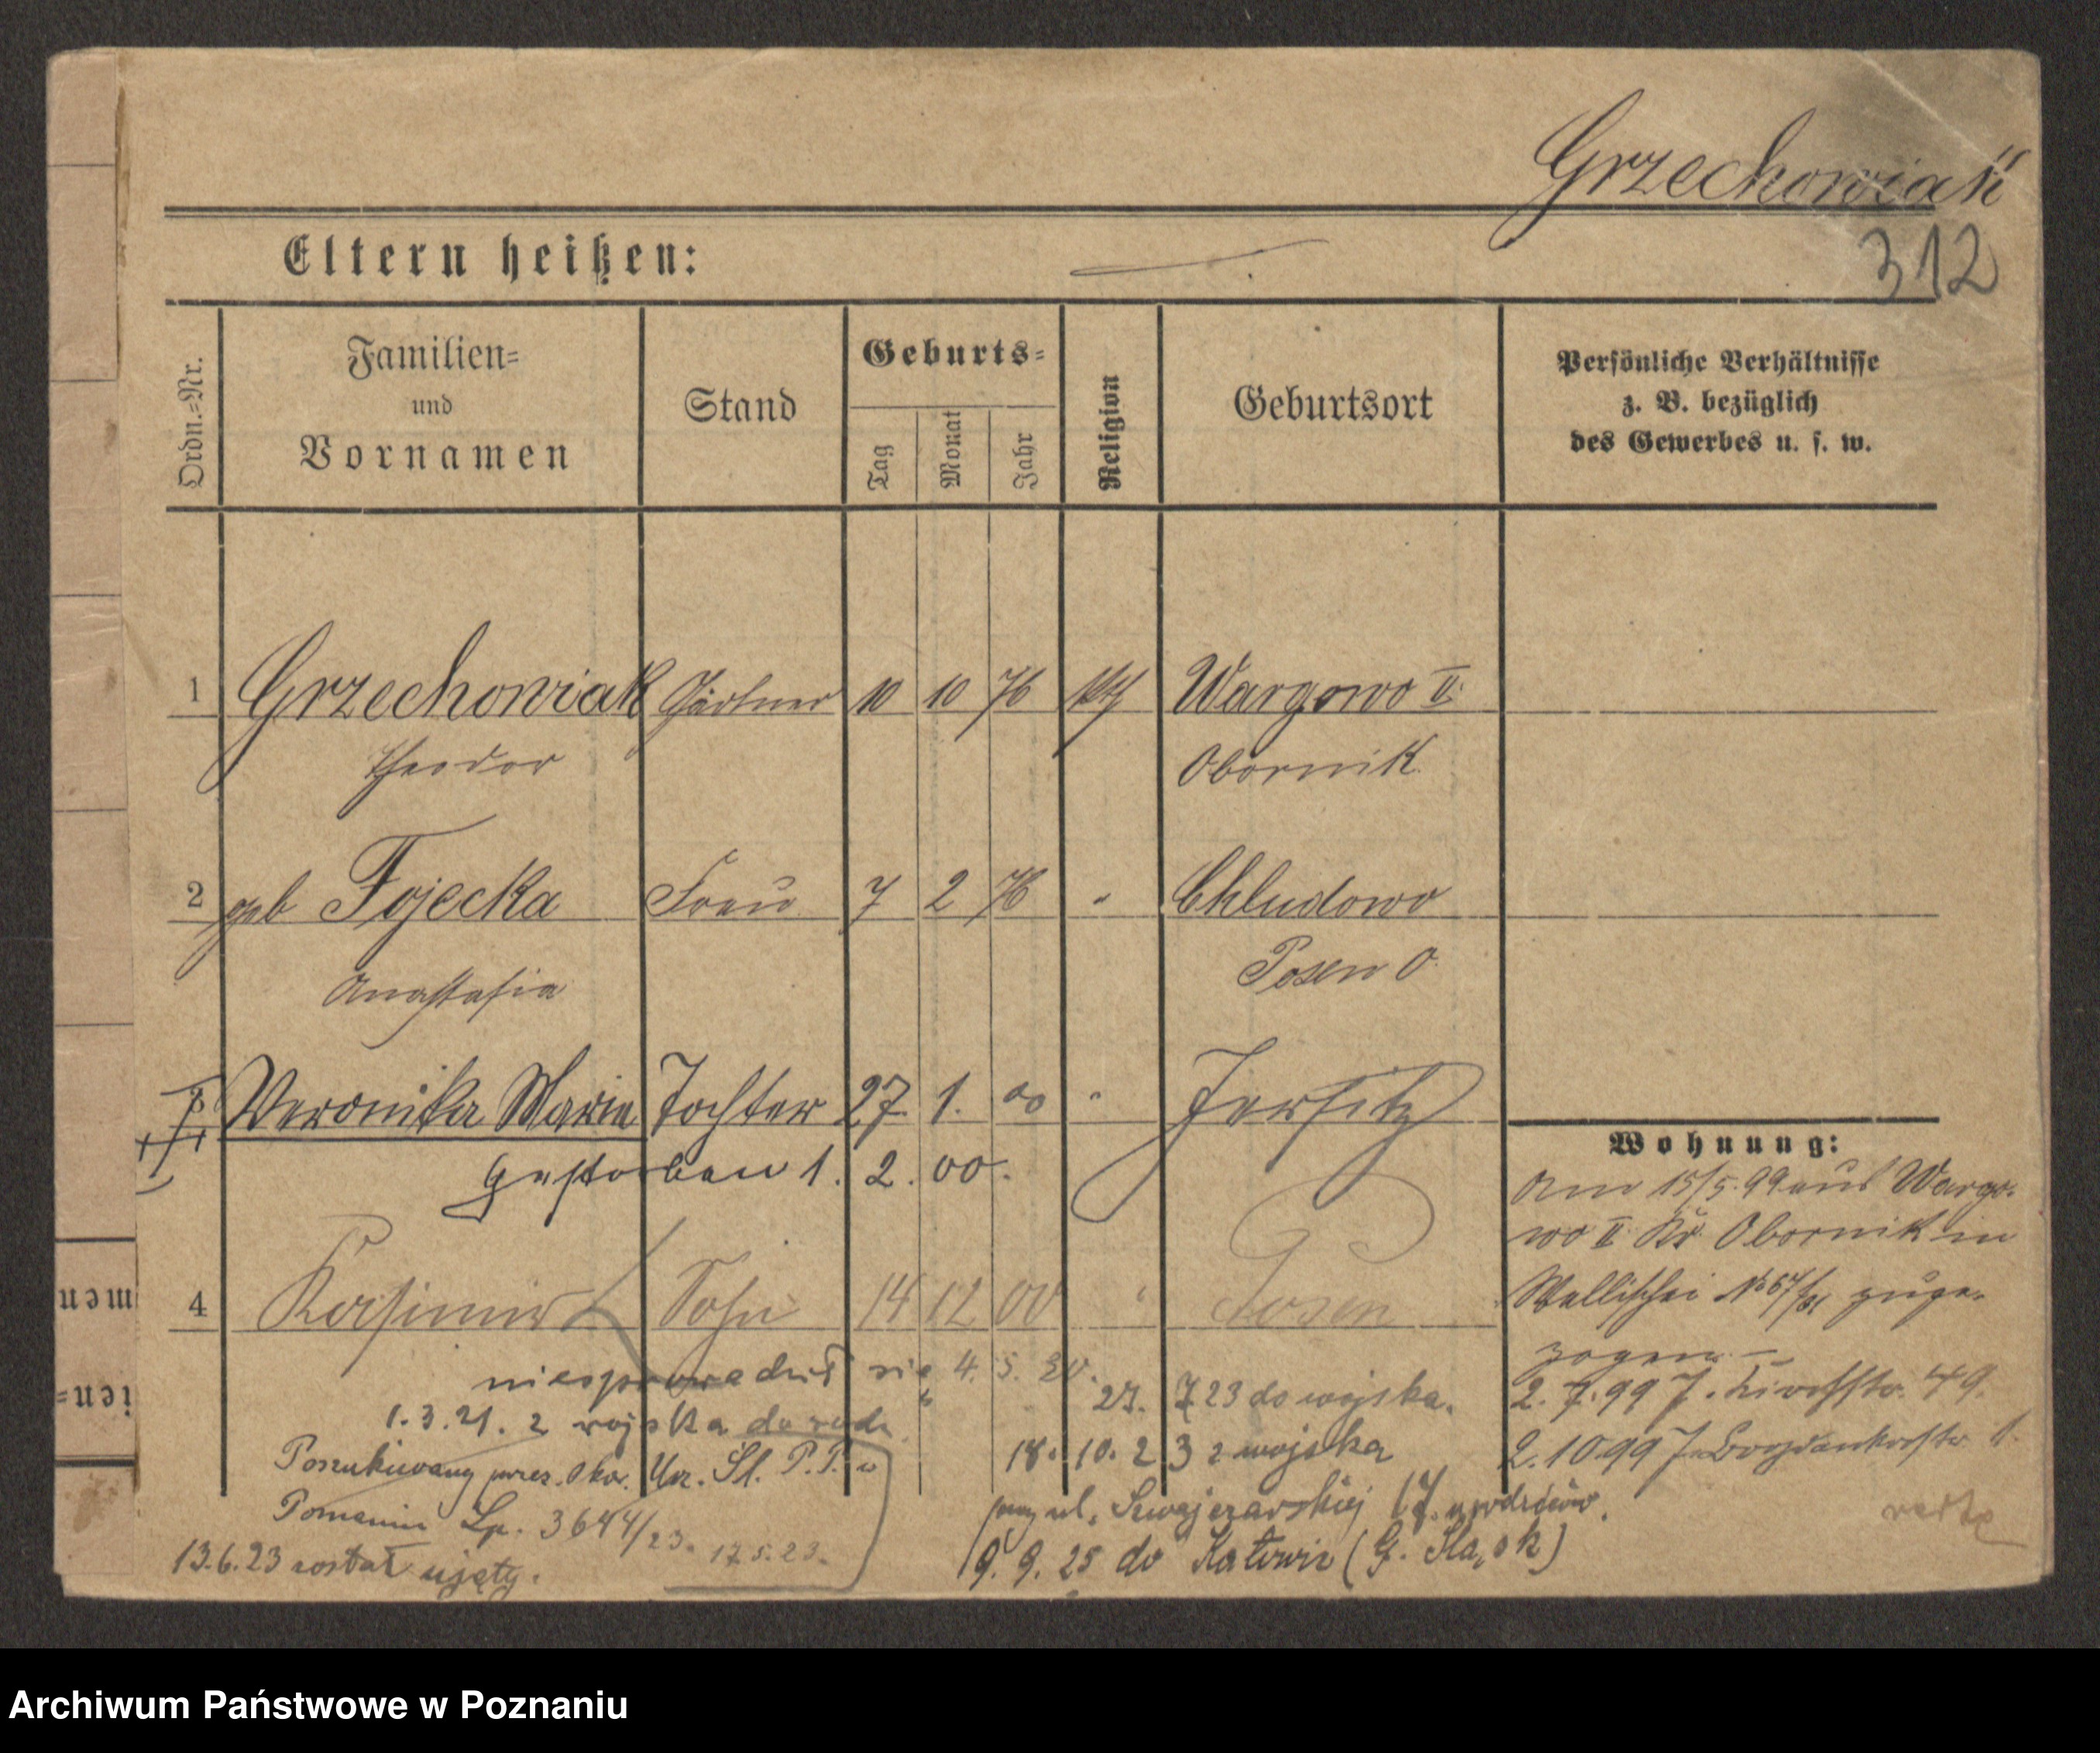 Grzechowiak
312
Eltern heißen:
Ordn.=Nr.
Familien=
und
Vornamen
Stand
Geburts=
Tag
Monat
Jahr
Religion
Geburtsort
Persönliche Verhältnisse
z. B. bezüglich
des Gewerbes u. s. w.
1 Grzechowiak Gärtner 10 10 76 kth Wargowo II.
Theodor Obornik
2 geb Fojecka Frau 7 2 76 " Chludowo
Anastasia Posen O.
3 Veronika Maria Tochter 27. 1. 00 " Jersitz
gestorben 1. 2. 00.
4 Kasimir Sohn 14 12 00 " Posen
Wohnung:
Am 15/5. 99 aus Wargo-
wo II. Kr. Obornik in
Wallischei No 67/ zuge-
zogen. —
2. 7. 99 J. Kirchstr. 49.
2. 10 99 J.
się 4. 5. 20.
1. 3. 21. z wojska do
Poszukiwany przez Okr. Urz. Śl. P. P. w
Poznaniu Lp. 3644/23. 17.5.23.
13.6.23 został ujęty.
23. 7 23 do wojska.
18. 10. 23 z wojska
przy ul. Szwajcarskiej 17. u rodziców.
9. 9. 25 do Katowic (G. Śląsk)
men
ien=
Archiwum Państwowe w Poznaniu